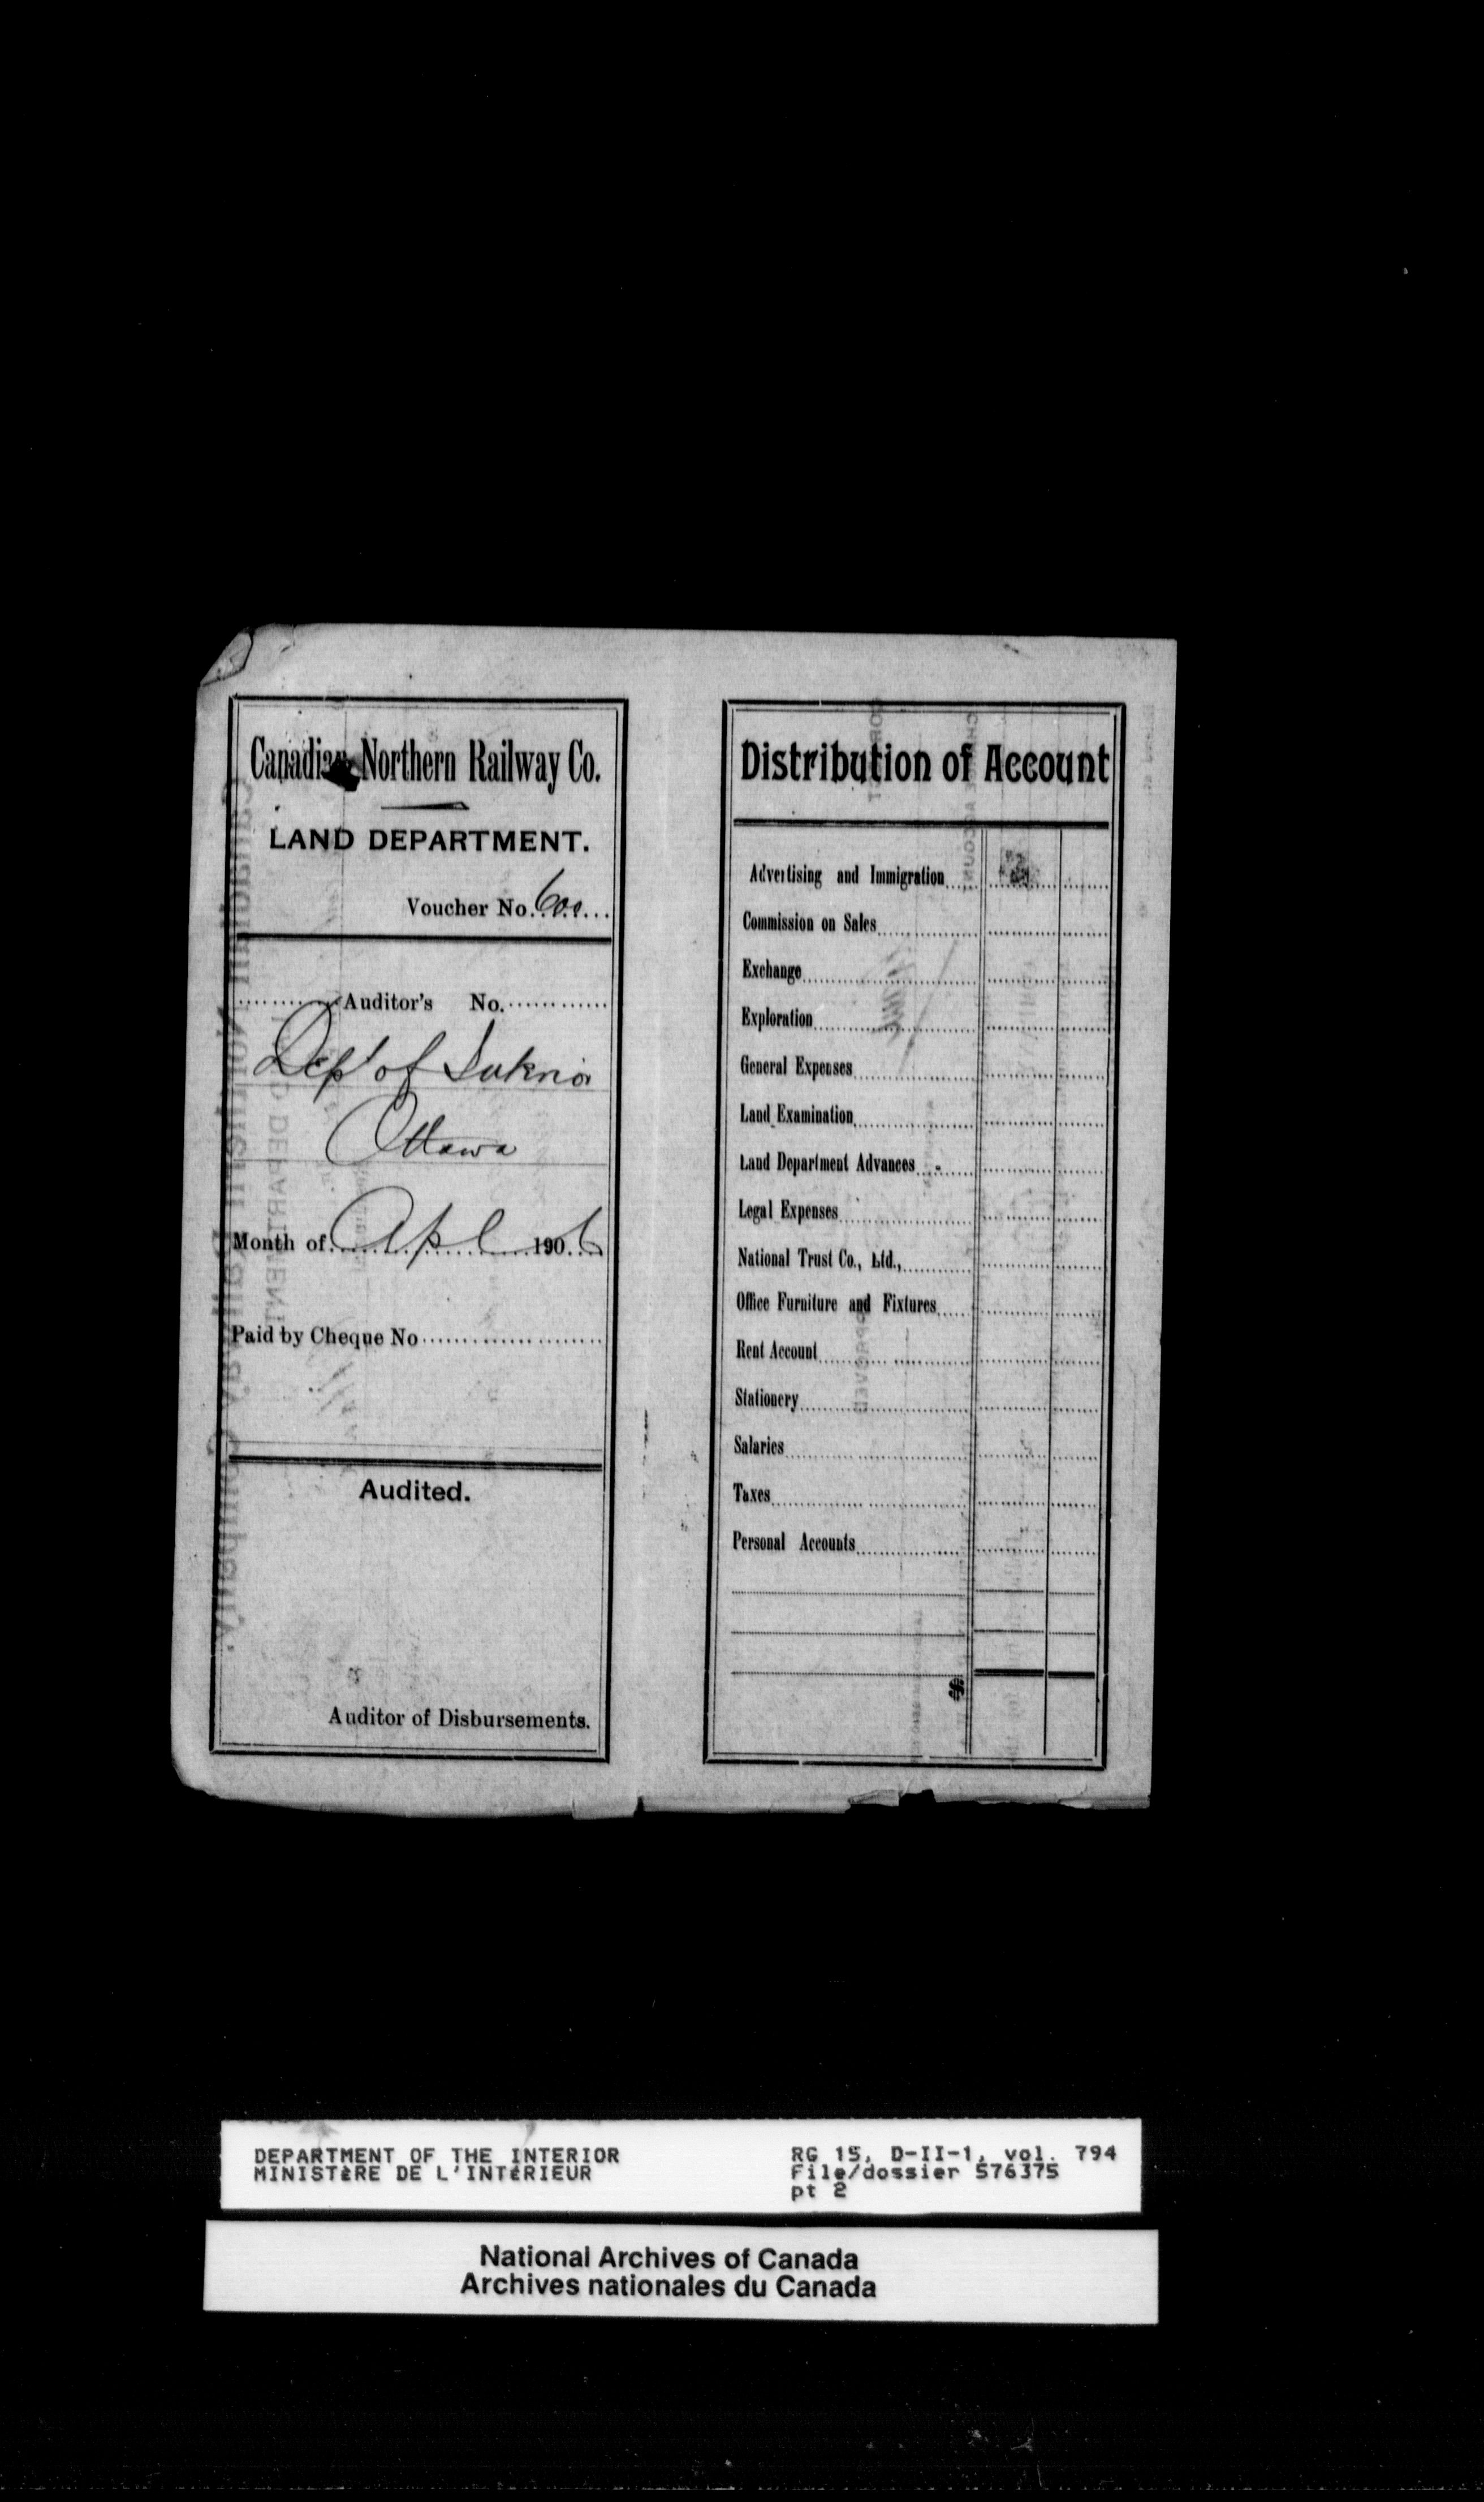 Canadian Northern Railway Co.
LAND DEPARTMENT.
Voucher No. 600
Auditor's No.
Dept of Interior
Ottawa
Month of Apl 1906
Paid by Cheque No
Audited.
Auditor of Disbursements.
Distribution of Account
Advertising and Immigration
Commission on Sales
Exchange
Exploration
General Expenses
Land Examination
Land Department Advances
Legal Expenses
National Trust Co., Ltd.,
Office Furniture and Fixtures
Rent Account
Stationery
Salaries
Taxes
Personal Accounts
$
DEPARTMENT OF THE INTERIOR
MINISTÈRE DE L'INTÉRIEUR
RG 15, D-II-1, vol. 794
File/dossier 576375
pt 2
National Archives of Canada
Archives nationales du Canada